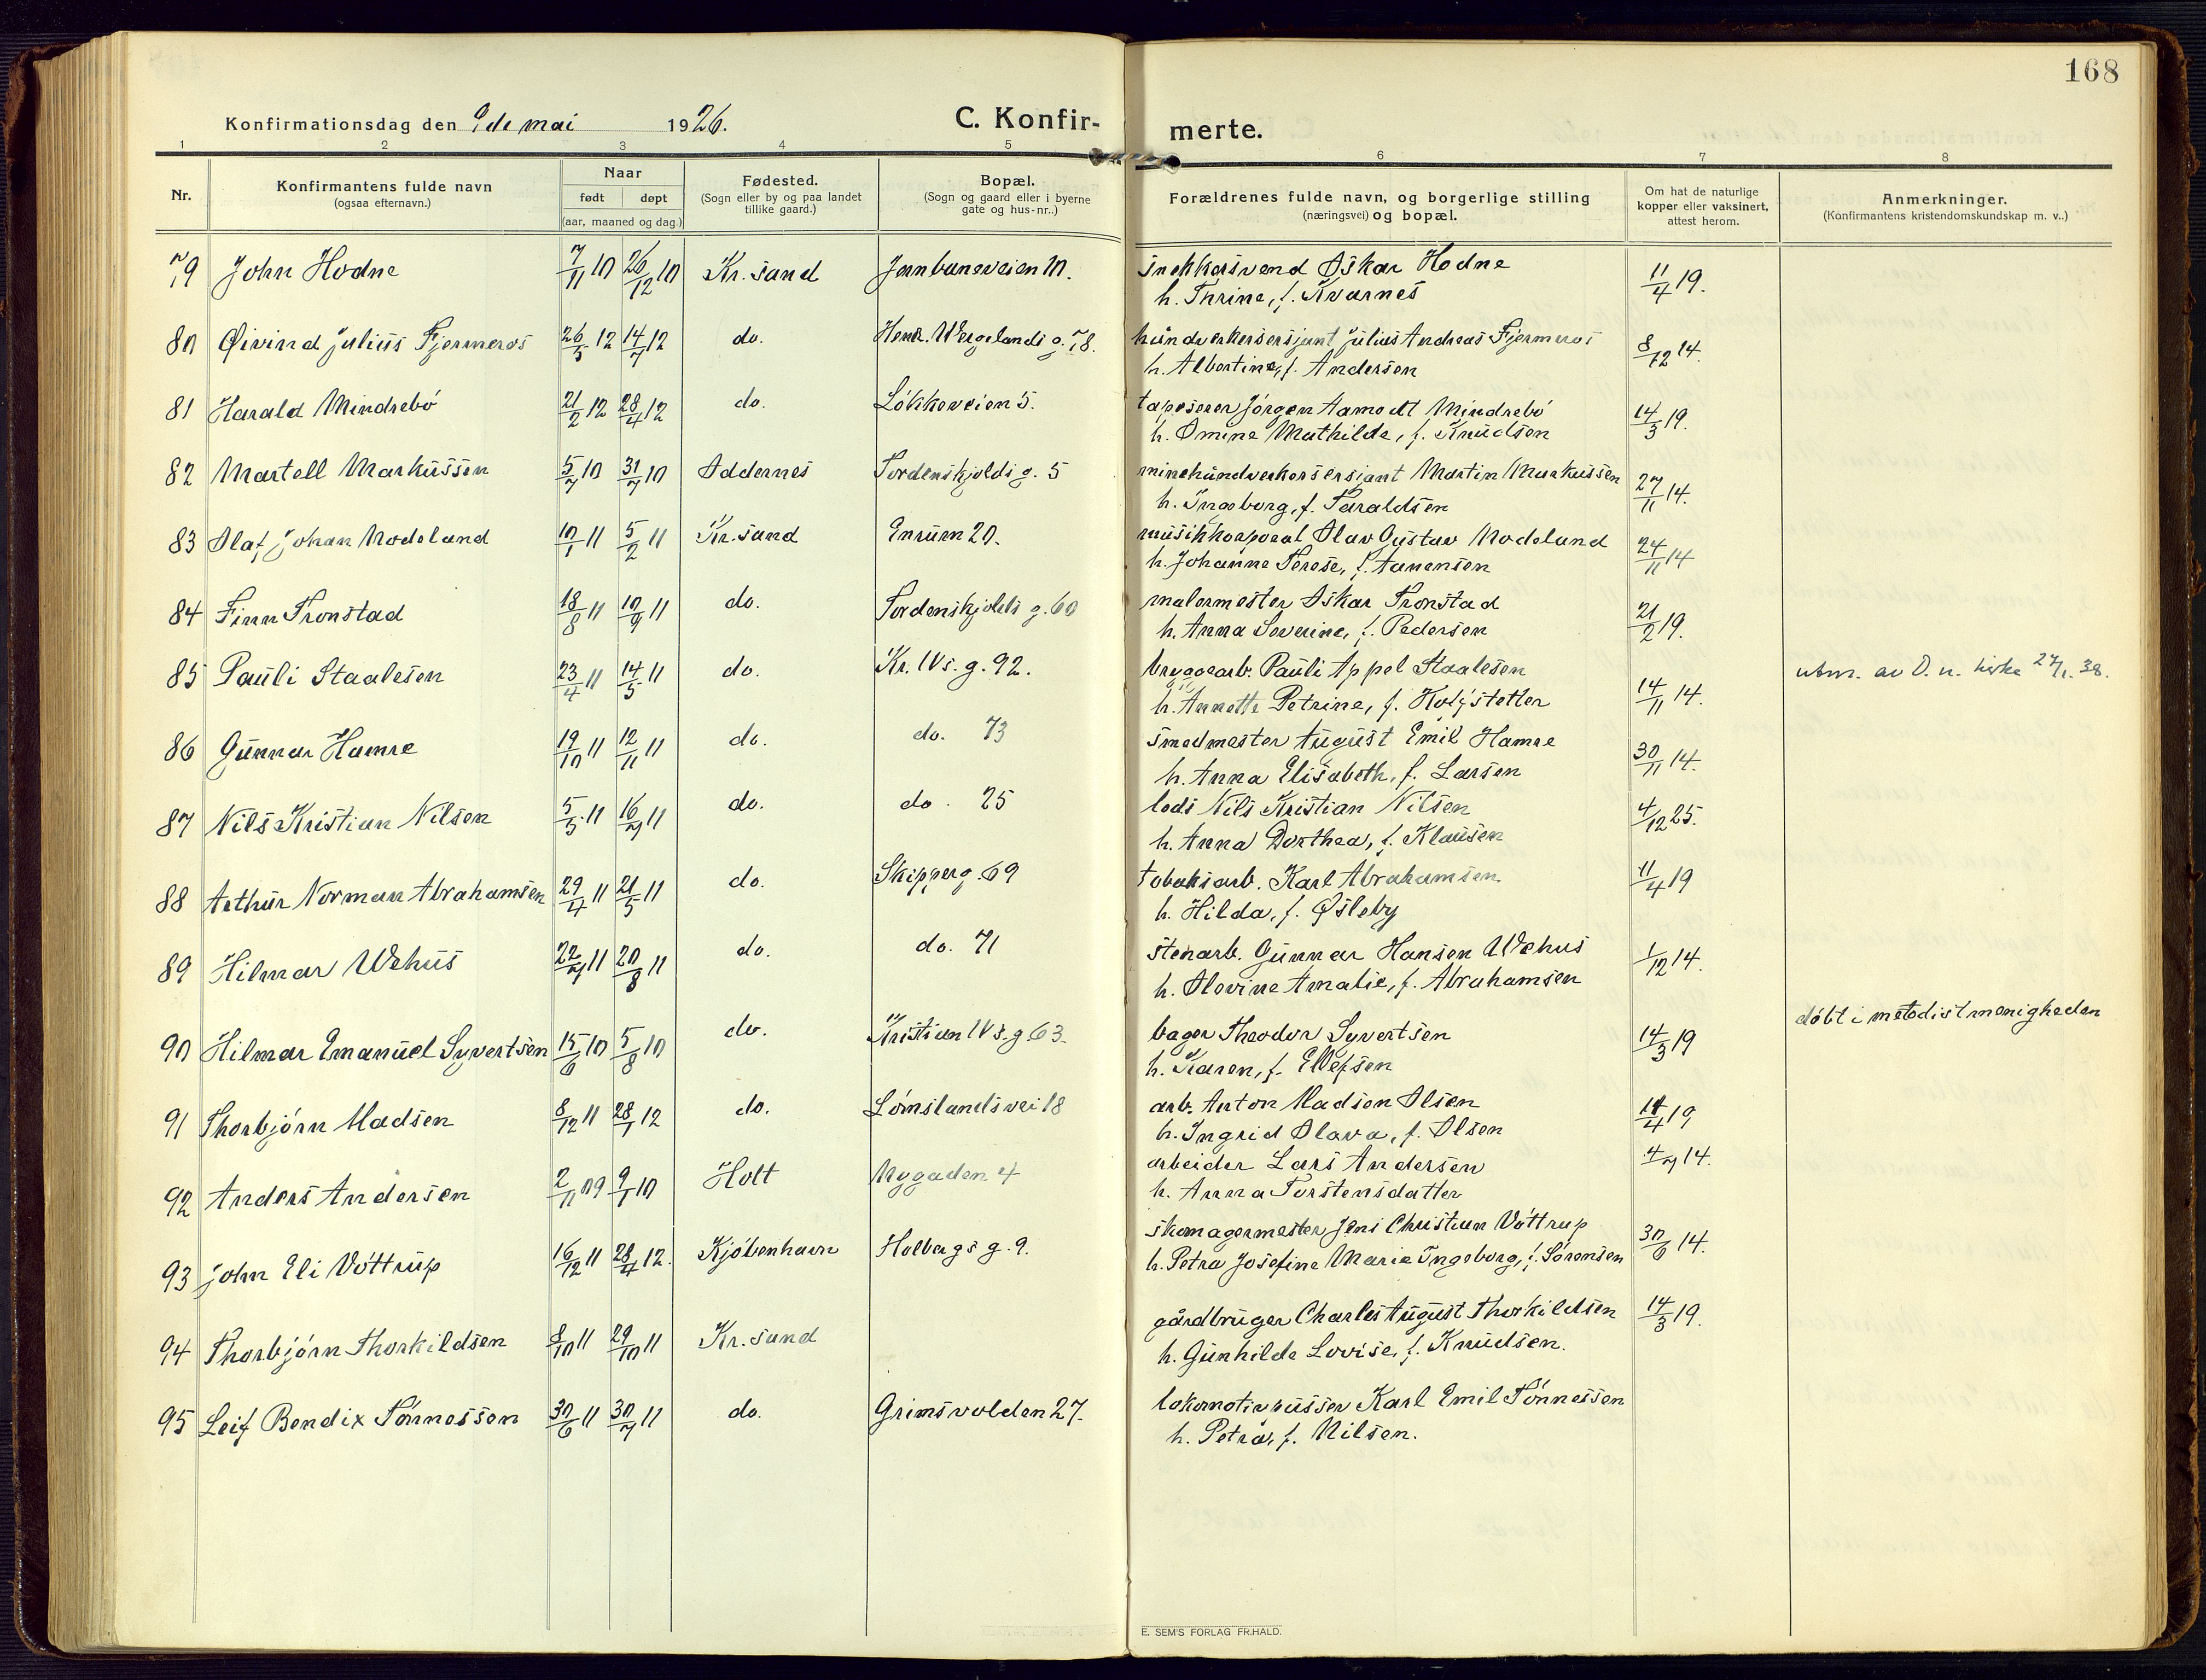 168
Konfirmationsdag den 9de mai 1926. C. Konfir-
merte.
1 2 3 4 5 6 7 8
Nr. Konfirmantens fulde navn (ogsaa efternavn.) Naar født døpt (aar, maaned og dag.) Fødested. (Sogn eller by og paa landet tillike gaard.) Bopæl. (Sogn og gaard eller i byerne gate og hus-nr..) Forældrenes fulde navn, og borgerlige stilling (næringsvei) og bopæl. Om hat de naturlige kopper eller vaksinert, attest herom. Anmerkninger. (Konfirmantens kristendomskundskap m. v..)
79 John Hodne 7/11 10 26/12 10 Kr. sand Jernbaneveien 10. snekkersvend Oskar Hodne 11/4 19.
h. Thrine, f. Kvarnes
80 Øivind Julius Fjermeros 26/5 12 14/7 12 do. Henr. Wergelands g. 78. håndverkersersjant Julius Andreas Fjermeros 8/12 14.
h. Albertine, f. Andersen
81 Harald Mindrebö 21/2 12 28/4 12 do. Lökkeveien 5. tapeserer Jörgen Aamodt Mindrebö 14/3 19.
h. Omine Mathilde, f. Knudsen
82 Martell Markussen 5/7 10 31/7 10 Oddernes Tordenskjolds g. 5 minehåndverkersersjant Martin Markussen 27/11 14.
h. Ingeborg, f. Taraldsen
83 Olaf Johan Nodeland 10/1 11 5/2 11 Kr. sand Enrum 20. musikkorporal Olav Gustav Nodeland 24/11 14
h. Johanne Terese, f. Aanensen
84 Finn Tronstad 18/8 11 10/9 11 do. Tordenskjolds g. 60 malermester Oskar Tronstad 21/2 19.
h. Anna Severine, f. Pedersen
85 Pauli Staalesen 23/4 11 14/5 11 do. Kr. IVs. g. 92. bryggearb. Pauli Appel Staalesen 14/11 14. utm. av D. n. kirke 27/1. 38.
h. Annette Petrine, f. Holjstetter
86 Gunnar Hamre 19/10 11 12/11 11 do. do. 73 smedmester August Emil Hamre 30/11 14.
h. Anna Elisabeth, f. Larsen
87 Nils Kristian Nilsen 5/5 11 16/7 11 do. do. 25 lods Nils Kristian Nilsen 4/12 25.
h. Anna Dorthea, f. Klausen
88 Arthur Norman Abrahamsen 29/4 11 21/5 11 do. Skipperg. 69 tobaksarb. Karl Abrahamsen. 11/4 19
h. Hilda, f. Øsleby
89 Hilmar Wehus 22/7 11 20/8 11 do. do. 71 stenarb. Gunnar Hansen Wehus 1/12 14.
h. Olovine Amalie, f. Abrahamsen
90 Hilmar Emanuel Syvertsen 15/6 10 5/8 10 do. Kristian IVs. g 63. bager Theodor Syvertsen 14/3 19 döbt i metodistmenigheden
h. Karen, f. Ellefsen
91 Thorbjörn Madsen 8/12 11 28/1 12 do. Lömslandsvei 18 arb. Anton Madsen Olsen 11/4 19
h. Ingrid Olava, f. Olsen
92 Anders Andersen 2/11 09 9/1 10 Holt Nygaden 4 arbeider Lars Andersen 4/7 14.
h. Anna Torstensdatter
93 John Eli Vöttrup 16/12 11 28/4 12. Kjöbenhavn Holbergs g. 9. skomagermester Jens Christian Vöttrup 30/6 14.
h. Petra Josefine Marie Ingeborg, f. Sörensen
94 Thorbjörn Thorkildsen 8/10 11 29/10 11 Kr. sand gårdbruger Charles August Thorkildsen 14/3 19.
h. Gunhilde Lovise, f. Knudsen.
95 Leif Bendix Tönnessen 30/6 11 30/7 11 do. Grimsvolden 27. lokomotivpusser Karl Emil Tönnessen
h. Petra, f. Nilsen.
E. SEM'S FORLAG FR.HALD.